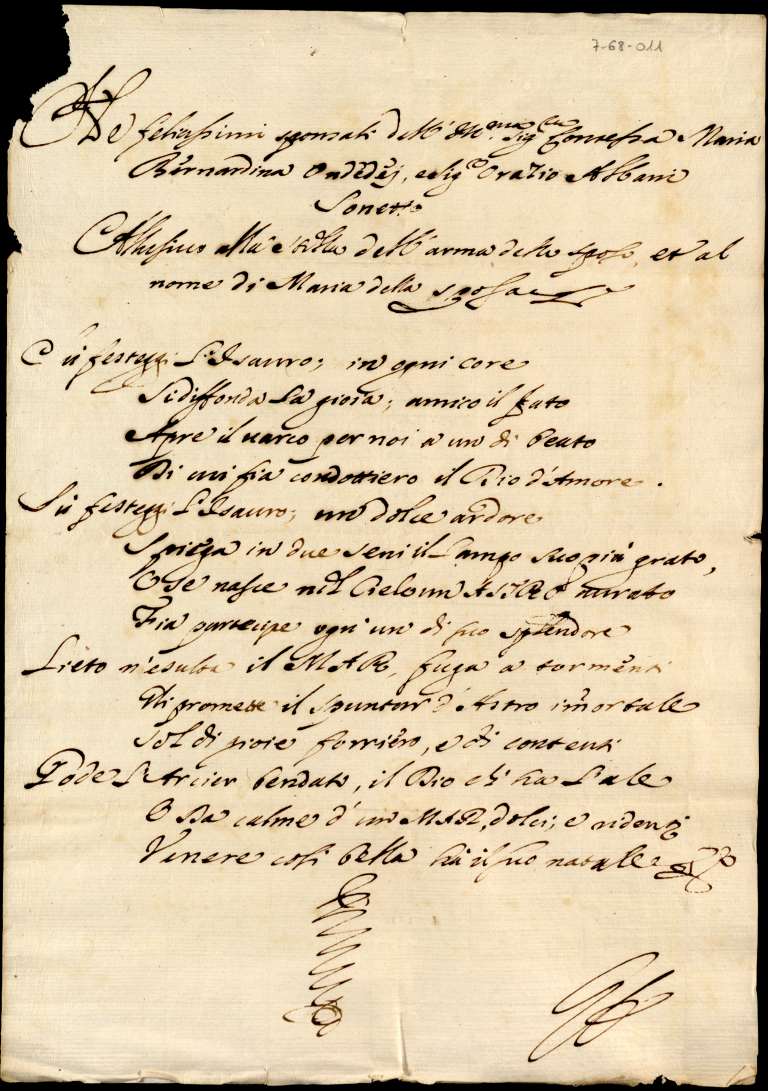 7-68-011
Ne felicissimi sponsali dell' Illma Sigra Contessa Maria
Bernardina Ondedej, e Sigr Orazio Albani
Sonetto
Allusivo alla stella dell'arma dello sposo, et al
nome di Maria della sposa
Sù festeggi L'Isauro; in ogni core
Si diffonda La gioia; amico il fato
Apre il varco per noi a un dì beato
Di cui fia condottiero il Dio d'Amore.
Sù festeggi L'Isauro; un dolce ardore
Spiega in due seni il Lampo suo più grato,
E se nasce nel Cielo un ASTRO aurato
Fia partecipe ogn'un di suo splendore
Lieto n'esulta il MAR, fuga a tormenti
Gli promette il spuntar d'Astro immortale
Sol di gioie forriero, e di contenti
Gode L'Arcier bendato, il Dio ch'ha L'ale
E Da calme d'un MAR, dolci, e ridenti
Venere così bella hà il suo natale